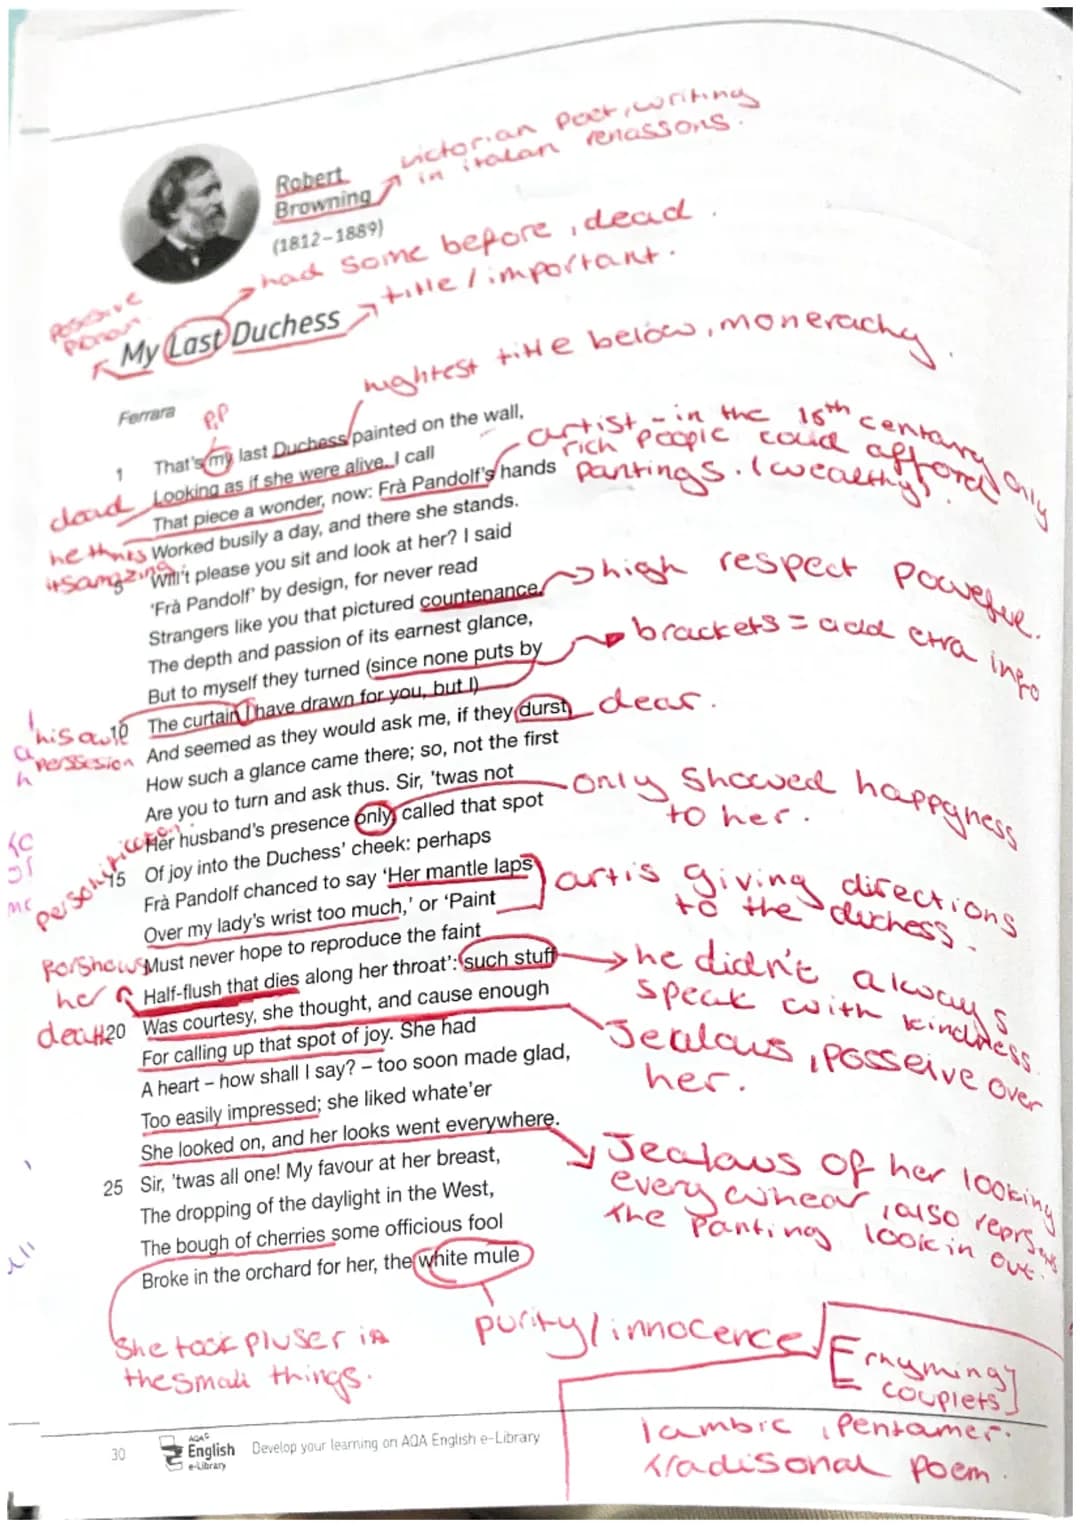 victorian poet, writing
in italan renassons.
Robert
Browning
(1812–1889)
had some before, dead.
title / important.
Possesive
Pronoun
My Last Duchess
hightest title below, monerachy.
Ferrara
P.P
1 That's my last Duchess painted on the wall,
Looking as if she were alive. I call
That piece a wonder, now: Frà Pandolf's hands
Worked busily a day, and there she stands.
5 Will't please you sit and look at her? I said
'Frà Pandolf' by design, for never read
Strangers like you that pictured countenance,
The depth and passion of its earnest glance,
But to myself they turned (since none puts by
10 The curtain I have drawn for you, but I)
And seemed as they would ask me, if they durst,
How such a glance came there; so, not the first
Are you to turn and ask thus. Sir, 'twas not
Her husband's presence only, called that spot
15 Of joy into the Duchess' cheek: perhaps
Frà Pandolf chanced to say 'Her mantle laps
Over my lady's wrist too much,' or 'Paint
Must never hope to reproduce the faint
Half-flush that dies along her throat': such stuff
20 Was courtesy, she thought, and cause enough
For calling up that spot of joy. She had
A heart – how shall I say? – too soon made glad,
Too easily impressed; she liked whate'er
She looked on, and her looks went everywhere.
25 Sir, 'twas all one! My favour at her breast,
The dropping of the daylight in the West,
The bough of cherries some officious fool
Broke in the orchard for her, the white mule
artist - in the 16th centanry only
rich people coud afford
Pantings. (wealthy)
dead
he thnks
itsamazing
high respect Powefue.
brackets = add etra info
his own
perssesion
dear.
only showed happyness
to her.
personification
artis giving directions
to the duchess.
For/shows
her
death
he didn't always
speak with kindness.
Jealous, posseive over
her.
Jealous of her looking
every whear, also reprsents
the Panting look in out.
She took pluser in
the small things.
purity / innocence
[rhyming
couplets]
Iambic, Pentamer.
tradisonal poem.
30
AQA
English
e-Library
Develop your learning on AQA English e-Library